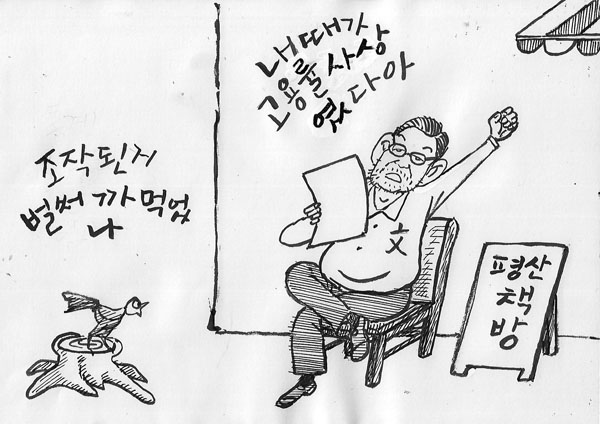 내때가
고용률사상
였다아
조작된거
벌써 까먹었
나
文
평산
책
방